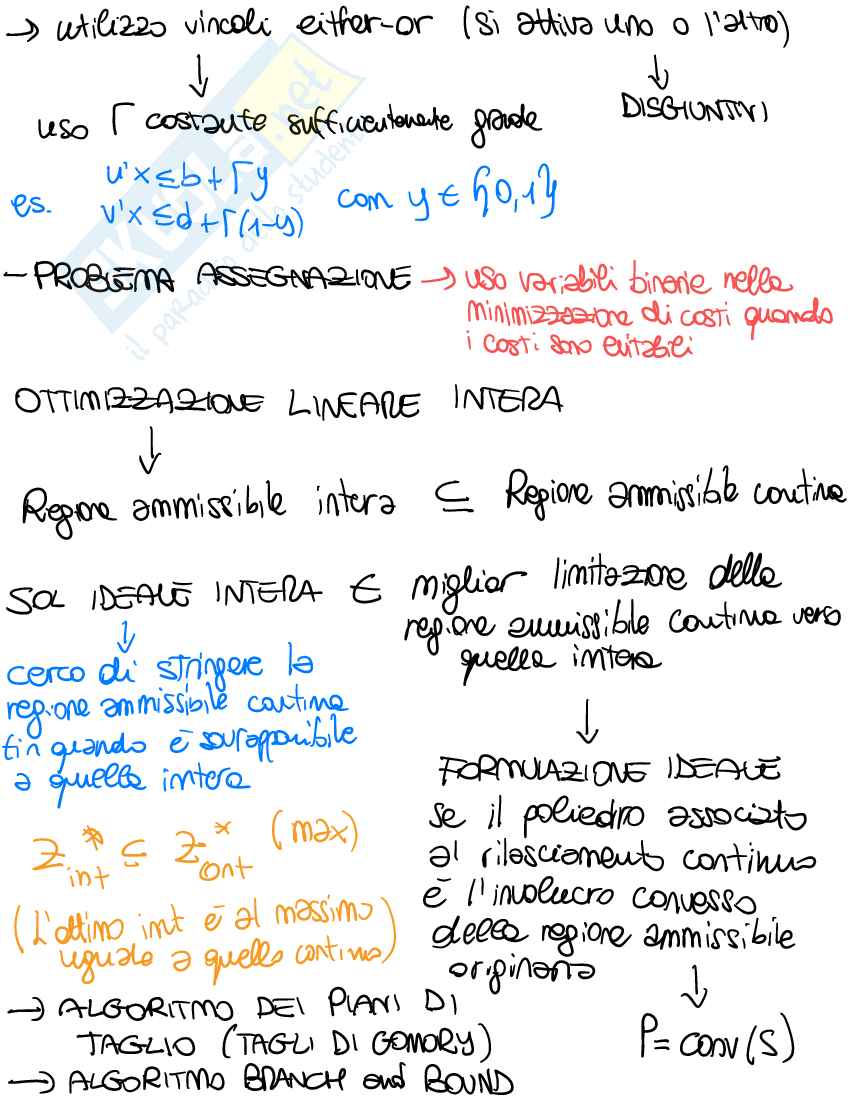 → utilizzo vincoli either-or (si attiva uno o l'altro)
↓ ↓
uso Γ costante sufficientemente grande DISGIUNTIVI
es. u'x ≤ b + Γy
v'x ≤ d + Γ(1-y) con y ∈ {0,1}
- PROBLEMA ASSEGNAZIONE → uso variabili binarie nella
minimizzazione di costi quando
i costi sono evitabili
OTTIMIZZAZIONE LINEARE INTERA
↓
Regione ammissibile intera ⊆ Regione ammissibile continua
SOL IDEALE INTERA ∈ miglior limitazione della
regione ammissibile continua verso
quella intera
↓
cerco di stringere la
regione ammissibile continua
fin quando è sovrapponibile
a quella intera
↓
FORMULAZIONE IDEALE
se il poliedro associato
al rilasciamento continuo
è l'involucro convesso
della regione ammissibile
originaria
↓
P = conv(S)
Z*int ⊆ Z*cont (max)
(L'ottimo int è al massimo
uguale a quello continuo)
→ ALGORITMO DEI PIANI DI
TAGLIO (TAGLI DI GOMORY)
→ ALGORITMO BRANCH and BOUND
SKUOLA.net
il paradiso dello studente